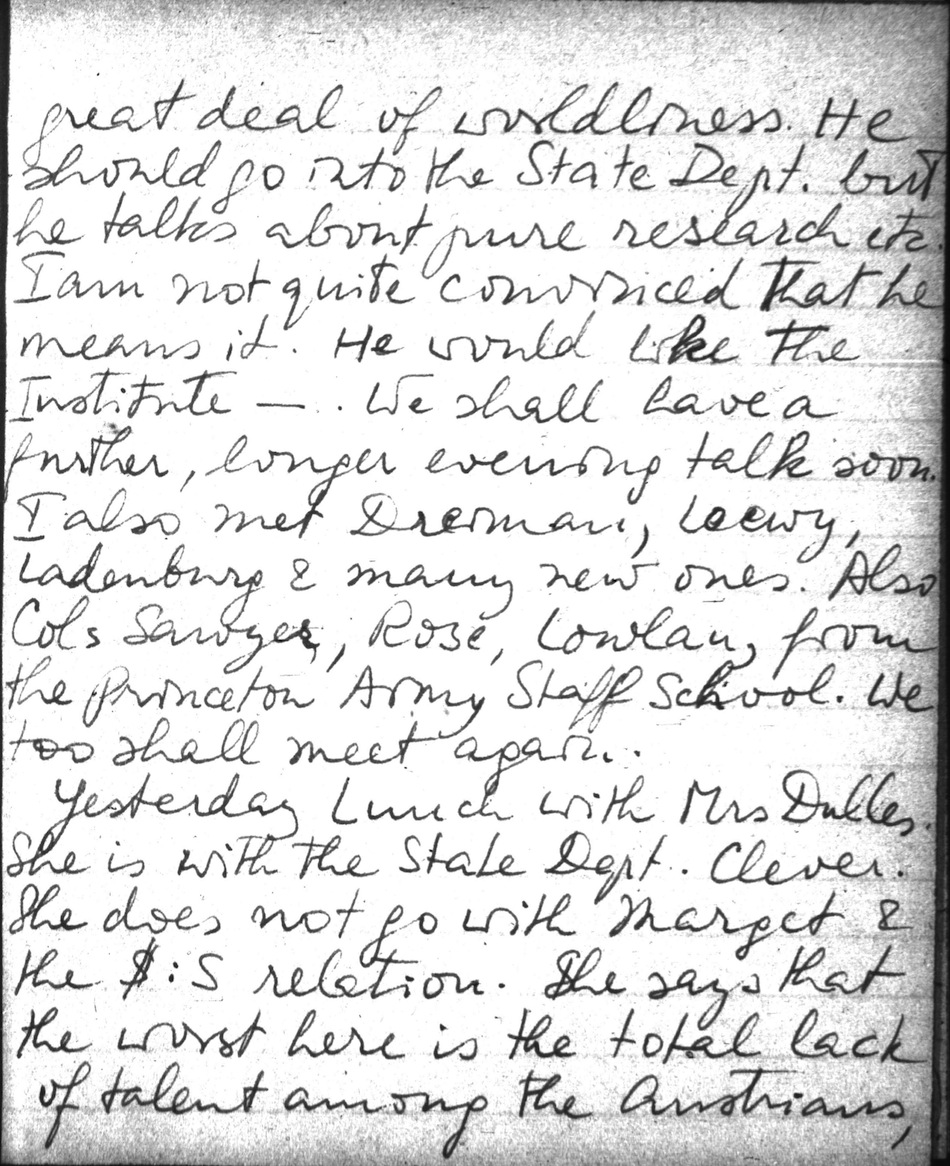 great deal of worldliness. He
should go into the State Dept. but
he talks about pure research etc.
I am not quite convinced that he
means it. He would like the
Institute — . We shall have a
further, longer evening talk soon.
I also met Dreiman, Loewy,
Ladenburg & many new ones. Also
Cols Sawyer, Rose, Lowlan, from
the Princeton Army Staff School. We
too shall meet again.
Yesterday Lunch with Mrs Dulles.
She is with the State Dept. Clever.
She does not go with Marget &
the $:S relation. She says that
the worst here is the total lack
of talent among the Austrians,